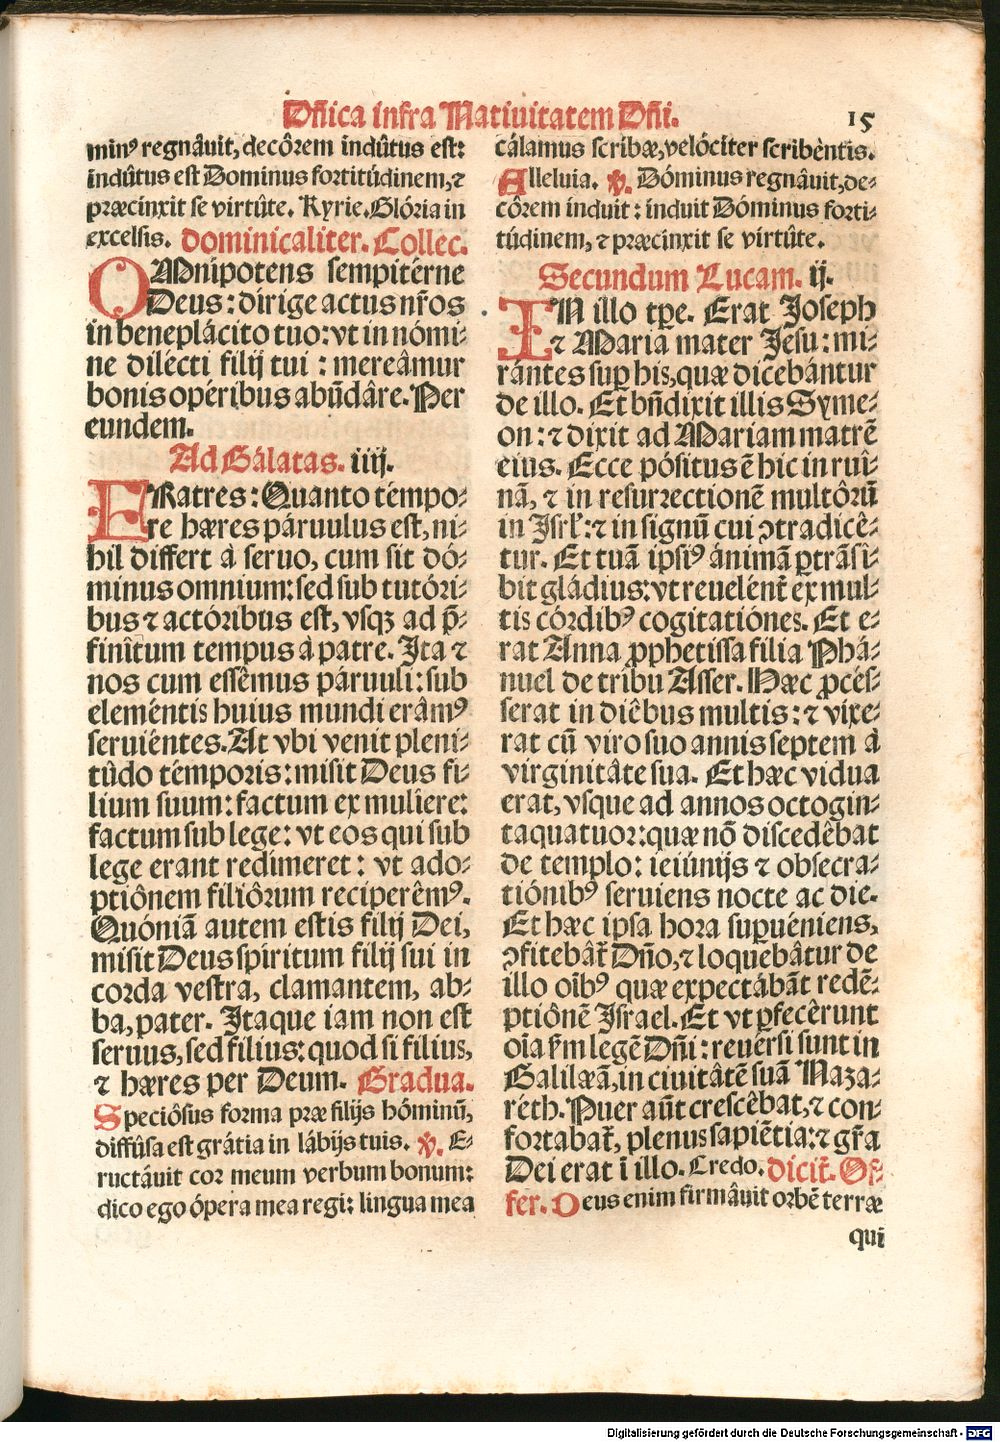 Dn̄ica infra Natiuitatem Dn̄i.
15
minꝰ regnâuit, decôrem indûtus est:
indûtus est Dominus fortitúdinem, ⁊
præcinxit se virtûte. Kyrie. Glória in
excelsis. Dominicaliter. Collec.
OMnípotens sempitérne
Deus: dirige actus nr̄os
in beneplácito tuo: vt in nómi-
ne dilécti filij tui: mereâmur
bonis opéribus abũdâre. Per
eundem.
Ad Gálatas. iiij.
FRatres: Quanto témpo-
re hæres páruulus est, ni-
hil differt à seruo, cum sit dó-
minus omnium: sed sub tutóri-
bus ⁊ actóribus est, vsqꝫ ad p̄-
finîtum tempus à patre. Ita ⁊
nos cum essêmus páruuli: sub
eleméntis huius mundi erâmꝰ
seruiéntes. At vbi venit pleni-
tûdo témporis: misit Deus fi-
lium suum: factum ex mulíere:
factum sub lege: vt eos qui sub
lege erant redímeret: vt ado-
ptiônem filiôrum reciperêmꝰ.
Quóniã autem estis filij Dei,
misit Deus spíritum filij sui in
corda vestra, clamantem, ab-
ba, pater. Itaque iam non est
seruus, sed filius: quod si filius,
⁊ hæres per Deum. Gradua.
Speciôsus forma præ filijs hóminũ,
diffûsa est grátia in lábijs tuis. ℣. E-
ructâuit cor meum verbum bonum:
dico ego ópera mea regi: lingua mea
cálamus scribæ, velóciter scribêntis.
Alleluia. ℣. Dóminus regnâuit, de-
côrem índuit: índuit Dóminus forti-
túdinem, ⁊ præcinxit se virtûte.
Secundum Lucam. ij.
IN illo tp̄e. Erat Joseph
⁊ Maria mater Jesu: mi-
rántes suꝑ his, quæ dicebántur
de illo. Et bñdixit illis Syme-
on: ⁊ dixit ad Mariam matrẽ
eius. Ecce pósitus ẽ hic in ruî-
nã, ⁊ in resurrectionẽ multôrũ
in Isrl̄: ⁊ in signũ cui ↄtradicê-
tur. Et tuã ipsiꝰ ánimã ꝑtrãsi-
bit gládius: vt reuelént̄ ex mul-
tis córdibꝰ cogitatiónes. Et e-
rat Anna ꝓphetissa filia Phá-
nuel de tribu Asser. Hæc ꝓcés-
serat in diêbus multis: ⁊ vixe-
rat cũ viro suo annis septem à
virginitâte sua. Et hæc vidua
erat, vsque ad annos octogin-
taquatuor: quæ nõ discedêbat
de templo: ieiúnijs ⁊ obsecra-
tiónibꝰ seruiens nocte ac die.
Et hæc ipsa hora suꝑuéniens,
ↄfitebāt̄ Dño, ⁊ loquebâtur de
illo oĩbꝰ quæ expectábãt redẽ-
ptiônẽ Israel. Et vt ꝑfecêrunt
oĩa ẜm legẽ Dñi: reuérsi sunt in
Galilæã, in ciuitâtẽ suã Naza-
réth. Puer aũt crescêbat, ⁊ con-
fortabat̄, plenus sapiẽtia: ⁊ gr̃a
Dei erat ĩ illo. Credo. dicit̄. Of-
fer. Deus enim firmâuit orbẽ terræ
qui
Digitalisierung gefördert durch die Deutsche Forschungsgemeinschaft - DFG